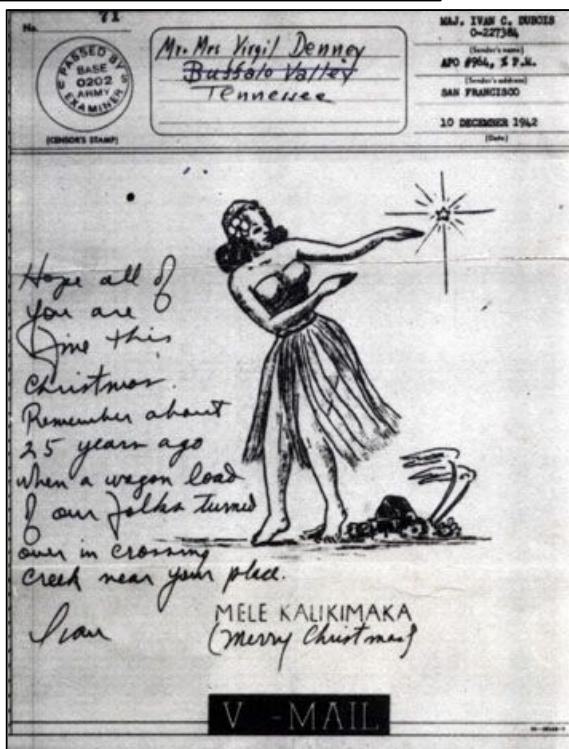 No. 71
PASSED BY
BASE
0202
ARMY
EXAMINER
(CENSOR'S STAMP)
Mr. Mrs Virgil Denney
Buffalo Valley
Tennessee
MAJ. IVAN C. DUBOIS
O-227384
(Sender's name)
APO #964, % P.M.
(Sender's address)
SAN FRANCISCO
10 DECEMBER 1942
(Date)
Hope all of
you are
fine this
Christmas.
Remember about
25 years ago
when a wagon load
of our folks turned
over in crossing
creek near your place.
Ivan
MELE KALIKIMAKA
(Merry Christmas)
V - MAIL